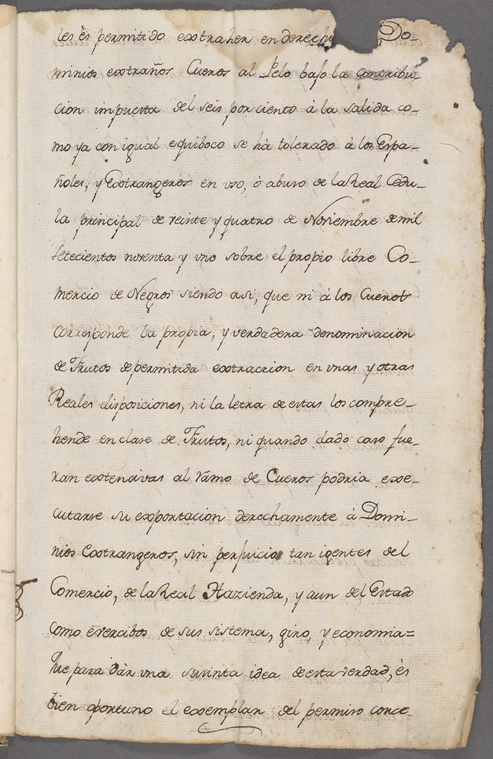 les és permitido extraher en derech Do-
minios extraños Cueros al Pelo bajo la contribu-
cion impuesta del seis por ciento à la salida co-
mo ya con igual equiboco se hà tolerado à los Espa-
ñoles, y Extrangeros en uso, ò abuso de la Real Cedu-
la principal de veinte y quatro de Noviembre de mil
Setecientos noventa y uno sobre el propio libre Co-
mercio de Negros siendo asi, que ni à los Cueros
corresponde la propia, y verdadera denominacion
de Frutos de permitida extraccion en unas y otras
Reales disposiciones, ni la letra de estas los compre-
hende en clase de Frutos, ni quando dado caso fue-
ran extensivas al ramo de Cueros podria exe-
cutarse su exportacion derechamente à Domi-
nios Extrangeros, sin perjuicio tan igentes del
Comercio, de la Real Hazienda, y aun del Estado
como de sus sistema, giro, y economia=
Que para dàr una sucinta idea de esta verdad, és
bien oportuno el exemplar del permiso conce-